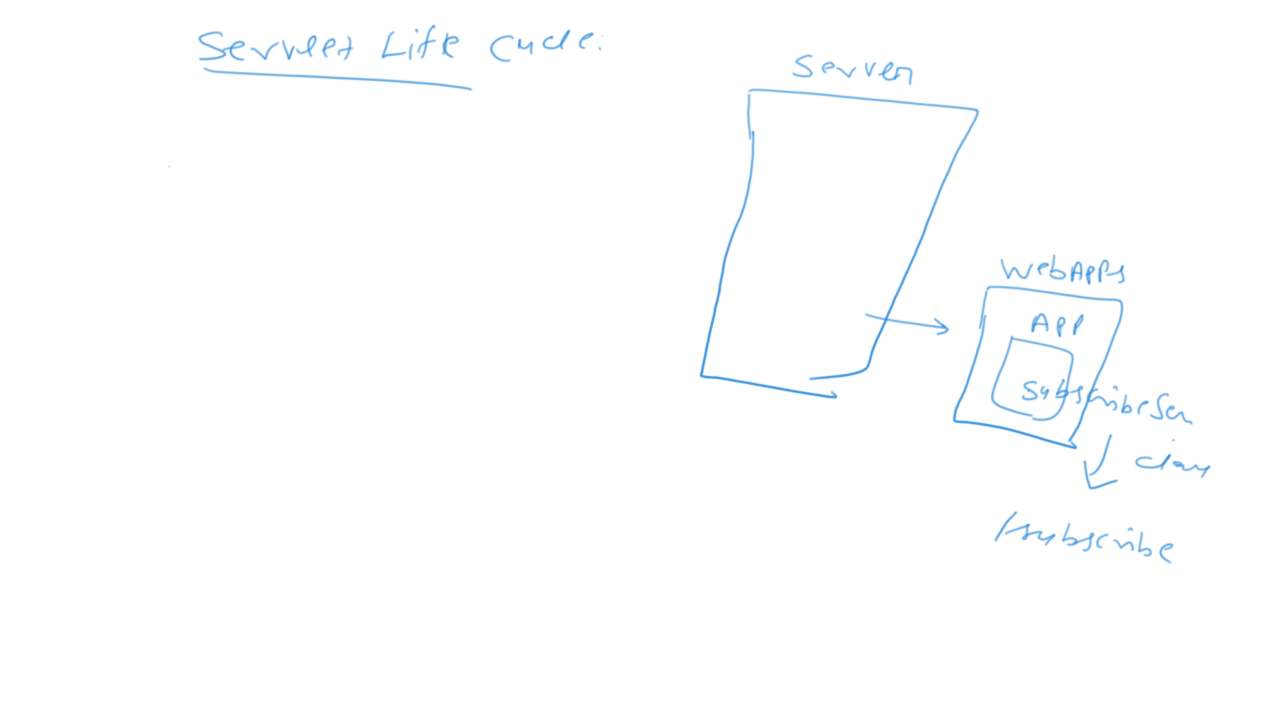 Servlet Life Cycle:
Server
WebApps
App
SubscribeSer
class
/subscribe